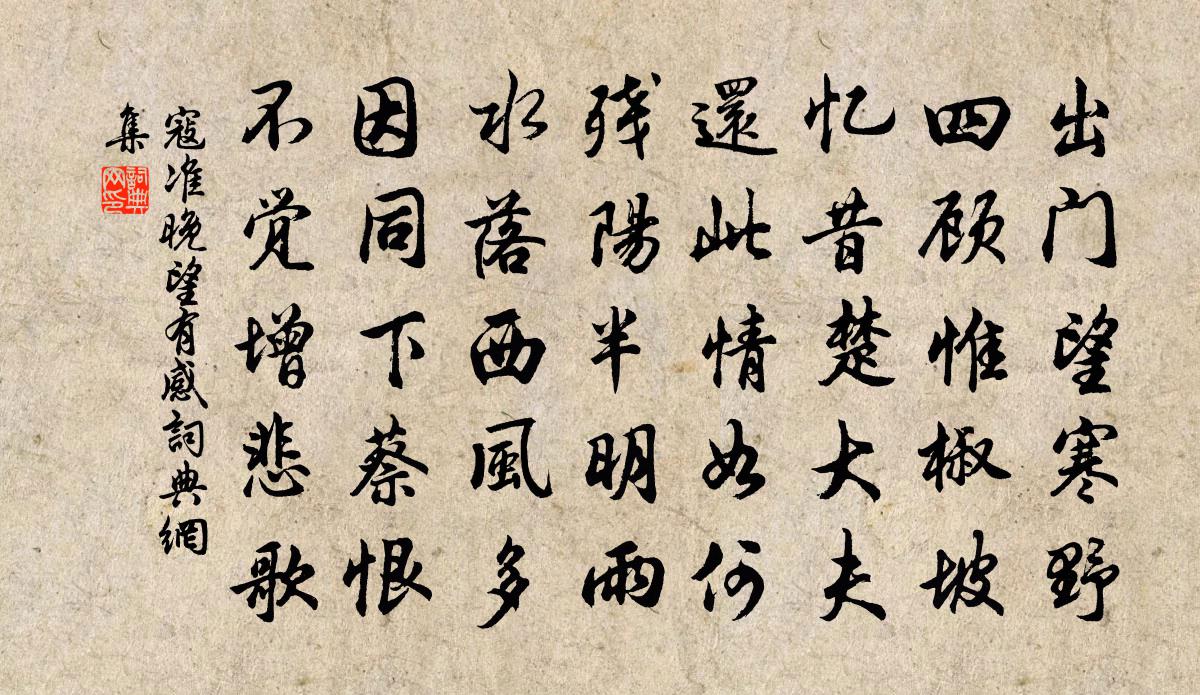 出门望寒野
四顾惟椒坡
忆昔楚大夫
還此情如何
残陽半明雨
水落西風多
因同下蔡恨
不觉增悲歌
寇准晚望有感詞典網
集
詞典
网印